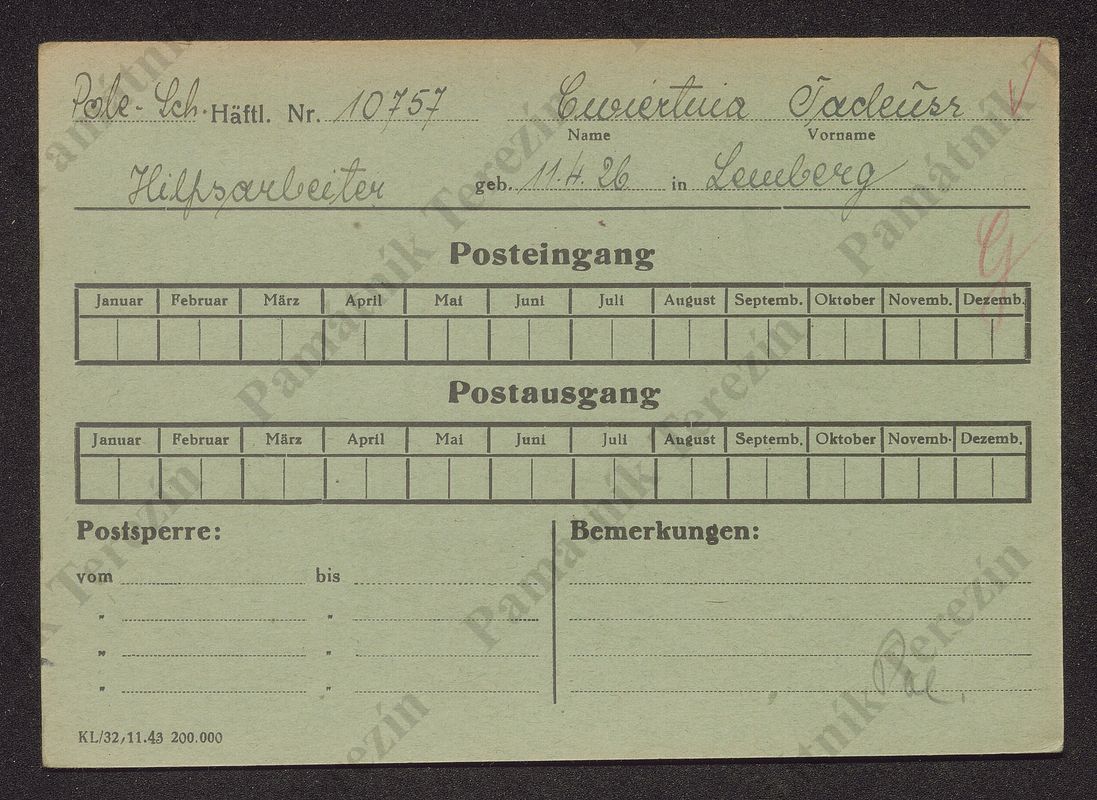 Pole - Sch. Häftl. Nr. 10757 Cwiertnia Tadeusz
Name Vorname
Hilfsarbeiter geb. 11.4.26 in Lemberg
Posteingang
Januar Februar März April Mai Juni Juli August Septemb. Oktober Novemb. Dezemb.
Postausgang
Januar Februar März April Mai Juni Juli August Septemb. Oktober Novemb. Dezemb.
Postsperre: Bemerkungen:
vom bis
" "
" "
" "
KL/32/11.43 200.000
Památník Terezín